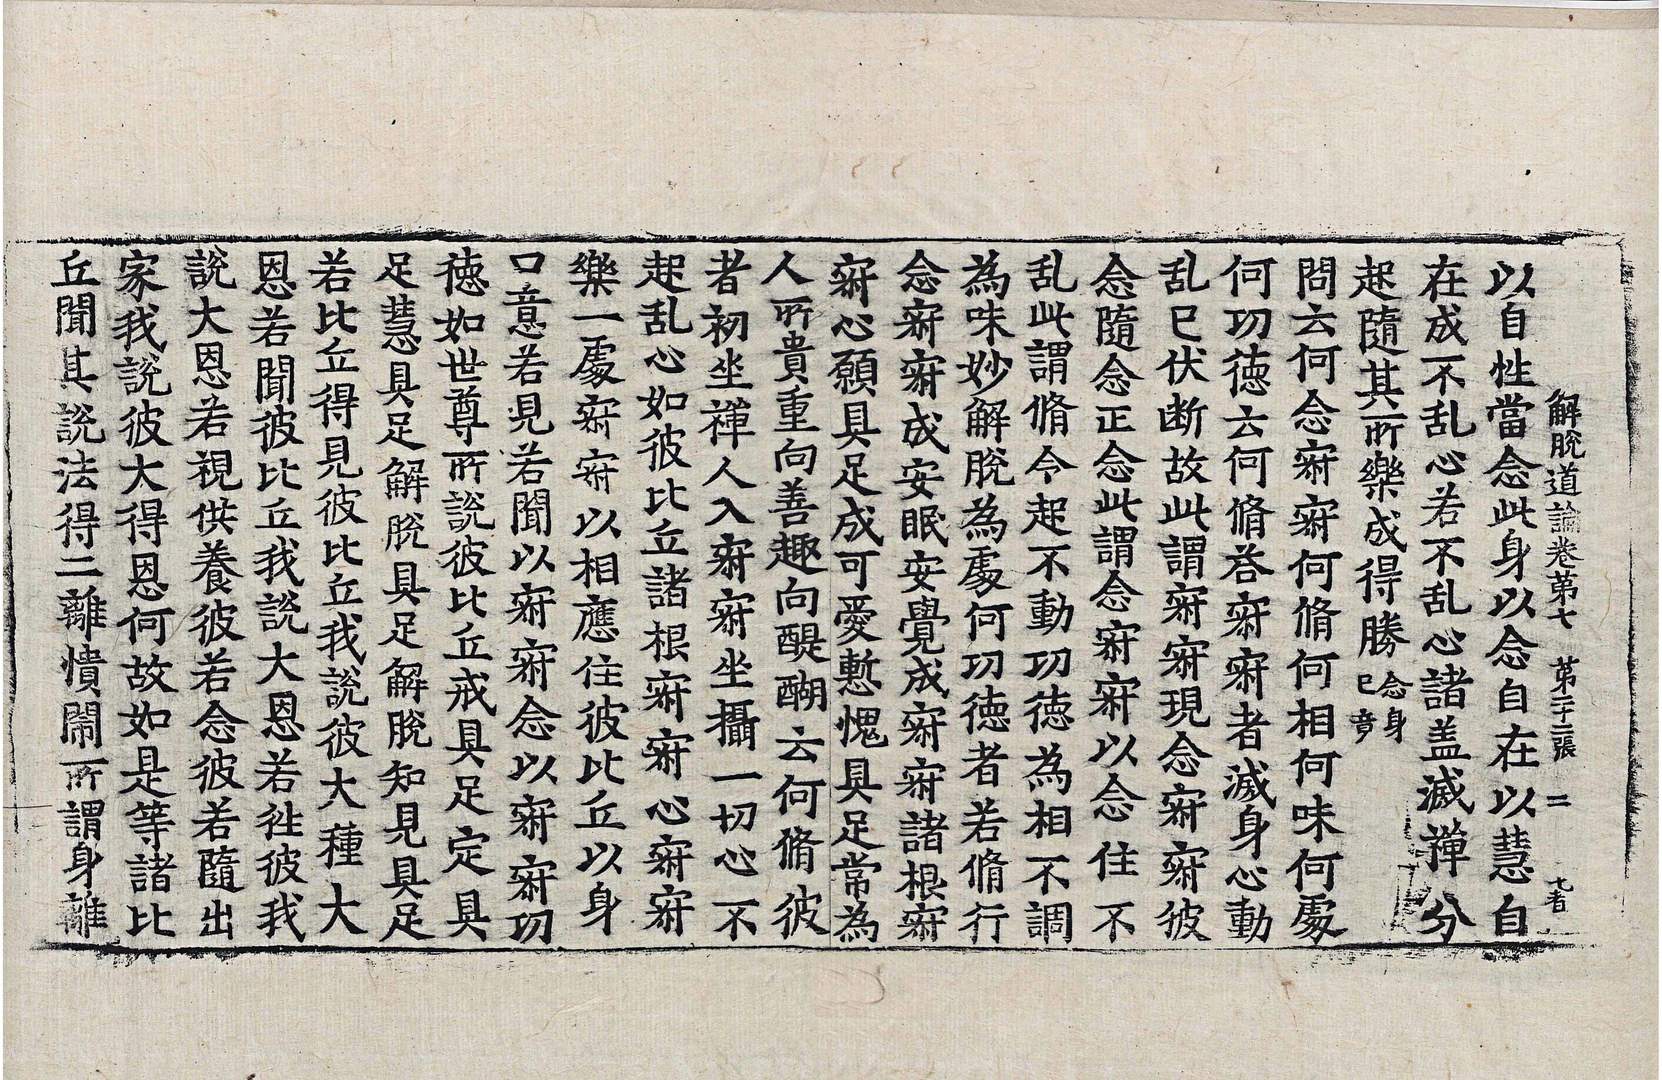 解脫道論卷第七 第二十二張 二
以自性當念此身以念自在以慧自
在成不乱心若不乱心諸盖滅禪分
起隨其所樂成得勝 念身已竟
問云何念寂寂何脩何相何味何處
何功徳云何脩荅寂寂者滅身心動
乱已伏断故此謂寂寂現念寂寂彼
念隨念正念此謂念寂寂以念住不
乱此謂脩令起不動功徳為相不調
為味妙解脫為處何功徳者若脩行
念寂寂成安眠安覺成寂寂諸根寂
寂心願具足成可愛慙愧具足常為
人所貴重向善趣向醍醐云何脩彼
者初坐禪人入寂寂坐攝一切心不
起乱心如彼比丘諸根寂寂心寂寂
樂一處寂寂以相應住彼比丘以身
口意若見若聞以寂寂念以寂寂功
徳如世尊所說彼比丘戒具足定具
足慧具足解脫具足解脫知見具足
若比丘得見彼比丘我說彼大種大
恩若聞彼比丘我說大恩若往彼我
說大恩若視供養彼若念彼若隨出
家我說彼大得恩何故如是等諸比
丘聞其說法得二離憒閙所謂身離